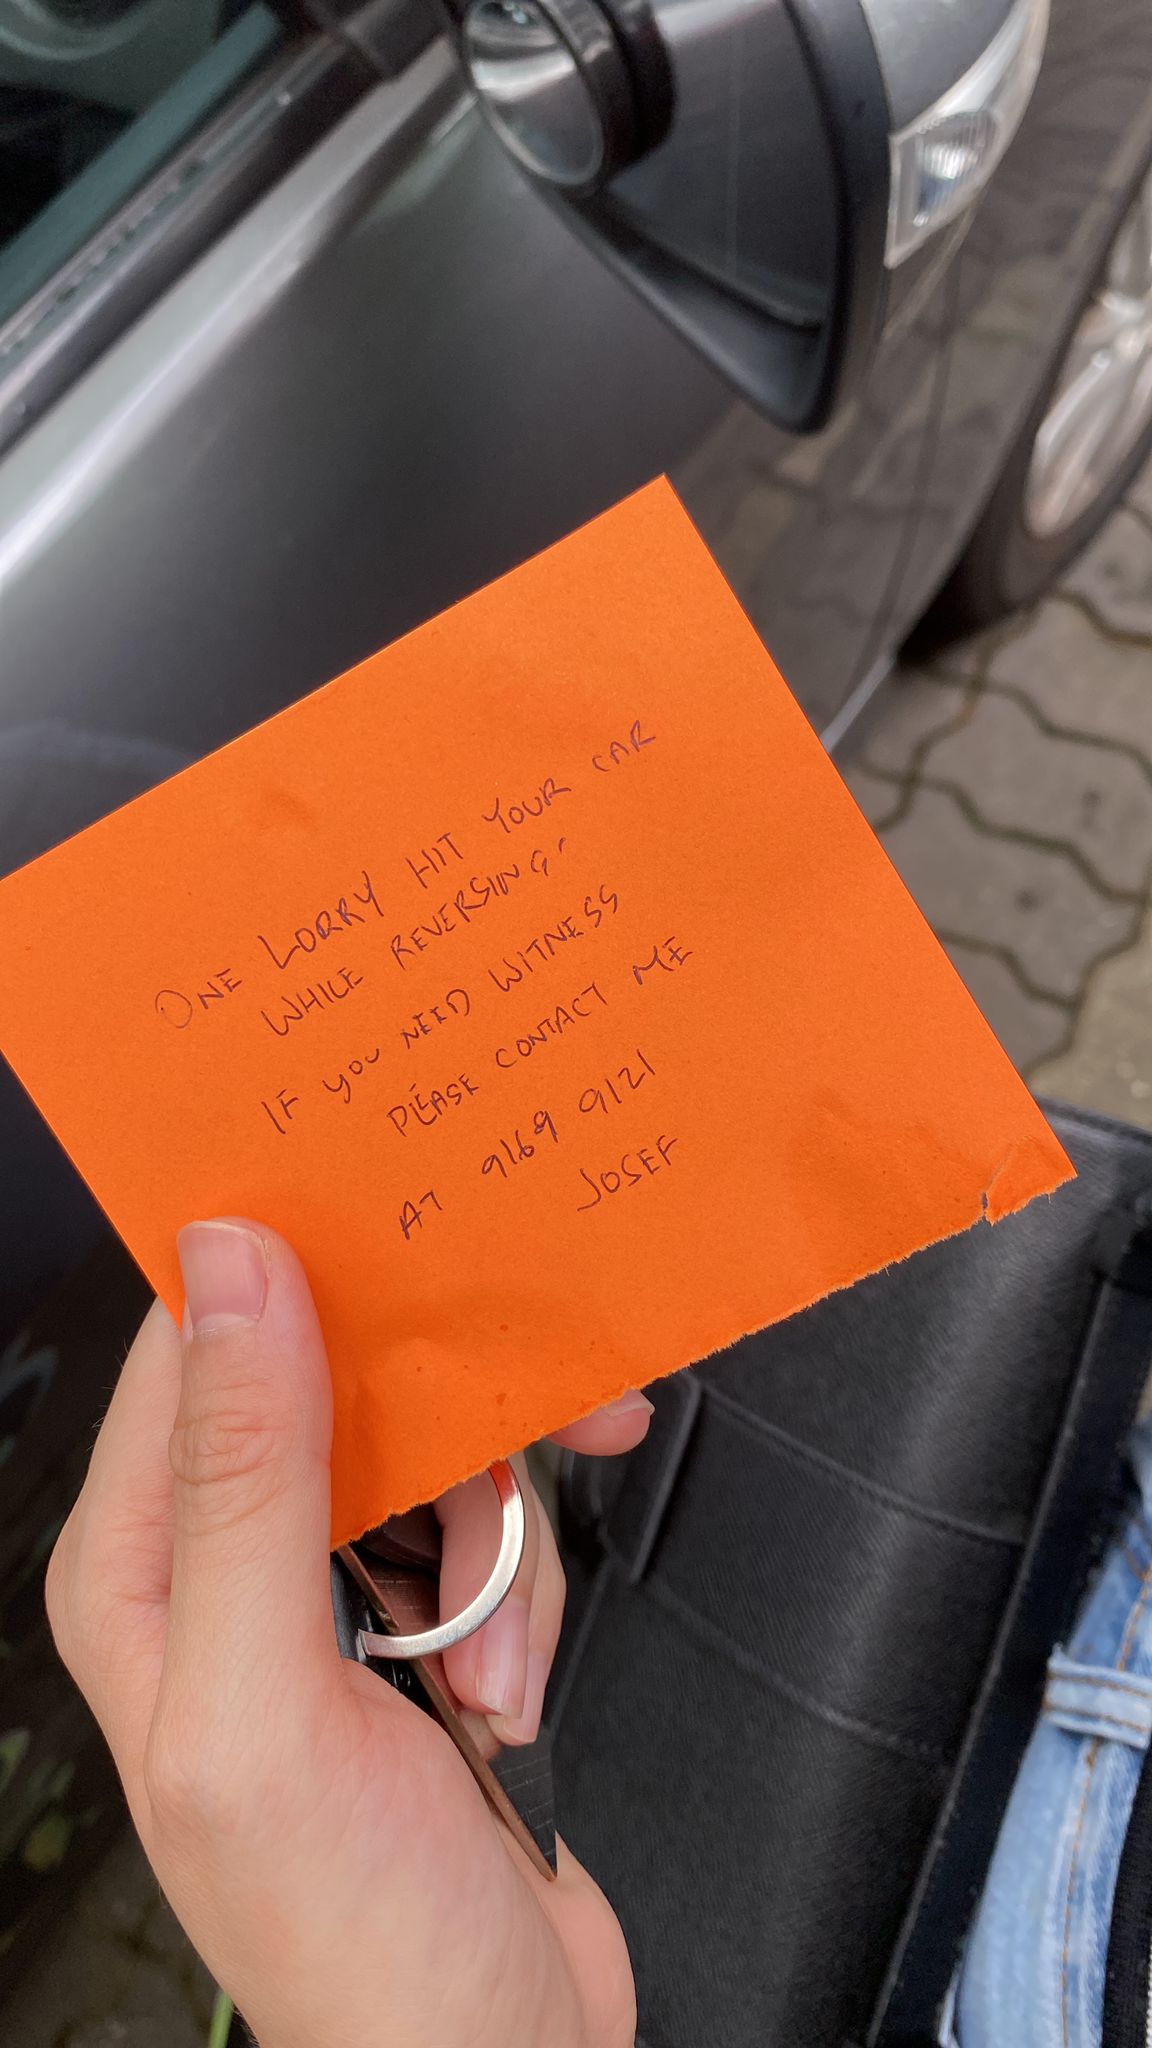 ONE LORRY HIT YOUR CAR
WHILE REVERSING.
IF YOU NEED WITNESS
PLEASE CONTACT ME
AT 9169 9121
JOSEF